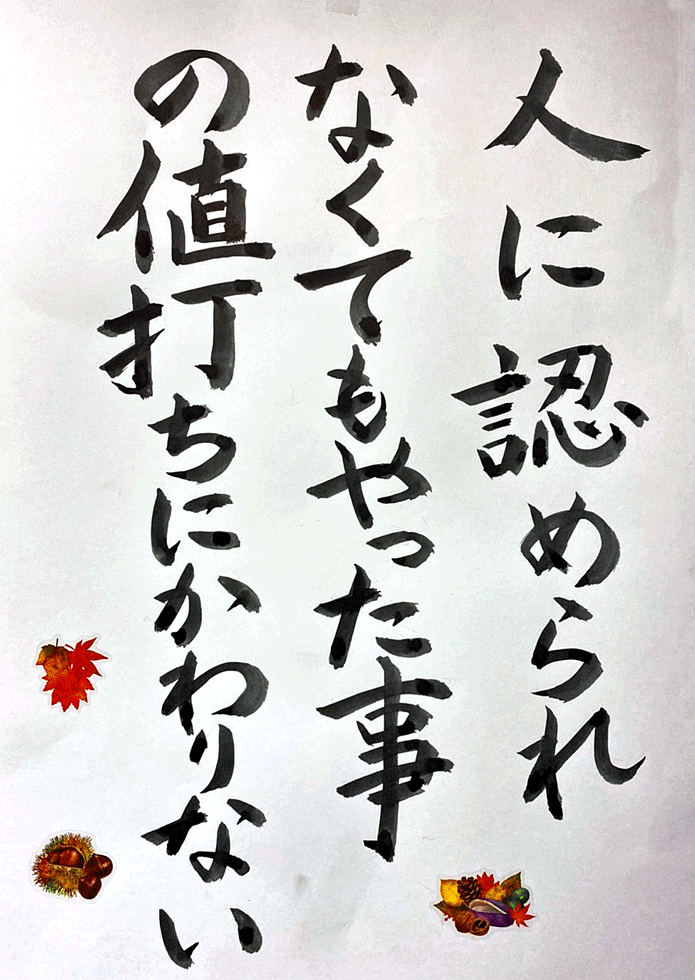 人に認められ
なくてもやった事
の値打ちにかわりない